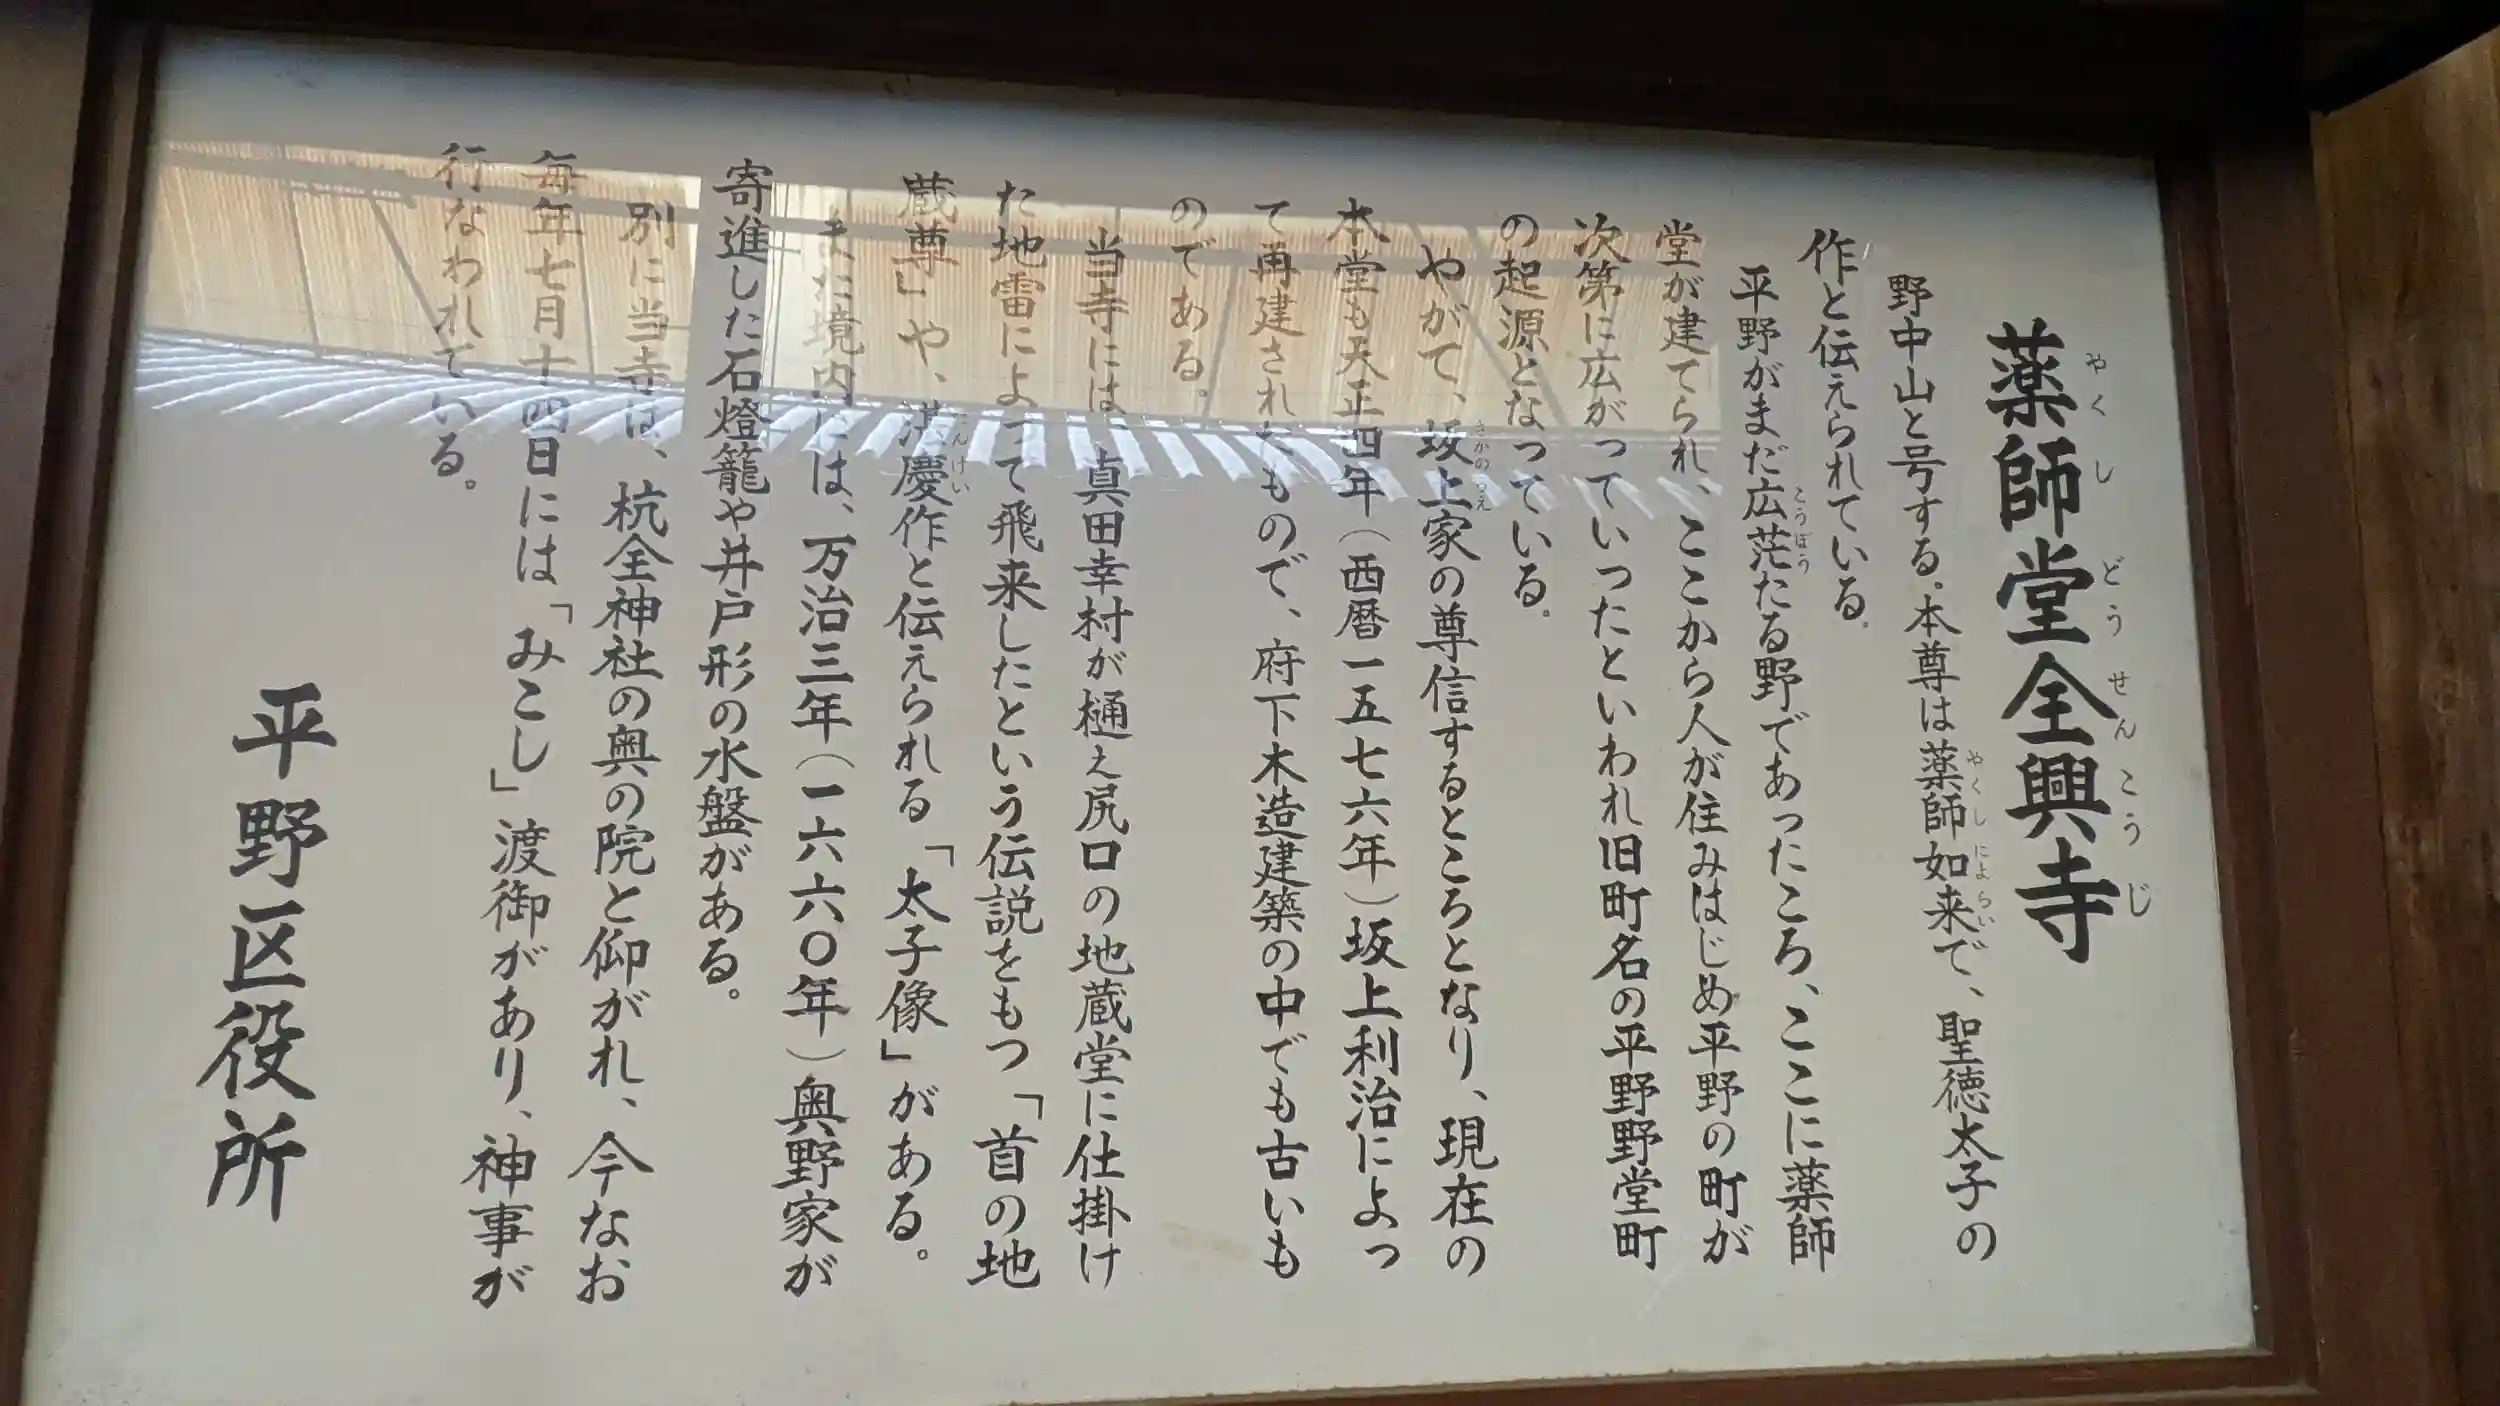 やくしどうせんこうじ
薬師堂全興寺
やくしによらい
野中山と号する。本尊は薬師如来で、聖徳太子の
作と伝えられている。
こうぼう
平野がまだ広茫たる野であったころ、ここに薬師
堂が建てられ、ここから人が住みはじめ平野の町が
次第に広がっていったといわれ旧町名の平野野堂町
の起源となっている。
さかのうえ
やがて、坂上家の尊信するところとなり、現在の
本堂も天正四年（西暦一五七六年）坂上利治によっ
て再建されたもので、府下木造建築の中でも古いも
のである。
当寺には、真田幸村が樋え尻口の地蔵堂に仕掛け
た地雷によって飛来したという伝説をもつ「首の地
たんけい
蔵尊」や、湛慶作と伝えられる「太子像」がある。
また境内には、万治三年（一六六〇年）奥野家が
寄進した石燈籠や井戸形の水盤がある。
別に当寺は、杭全神社の奥の院と仰がれ、今なお
毎年七月十四日には「みこし」渡御があり、神事が
行なわれている。
平野区役所